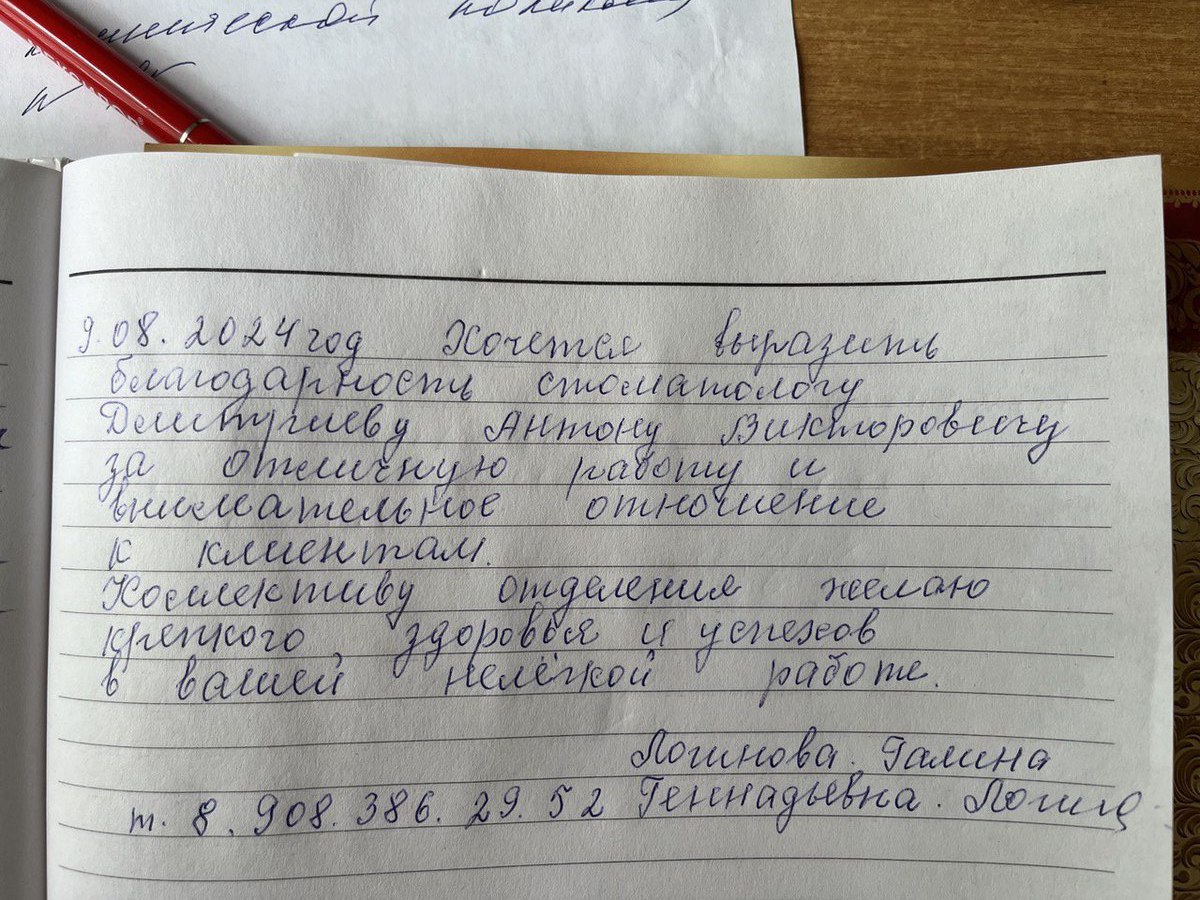 9.08.2024 год Хочется выразить
благодарность стоматологу
Антону Викторовичу
за отличную работу и
внимательное отношение
к клиентам.
Коллективу отделения желаю
крепкого здоровья и успехов
в вашей нелёгкой работе.
Логинова Галина
т. 8. 908. 386. 29. 52 Геннадьевна.